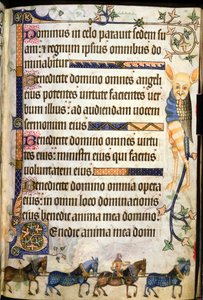 Dominus in celo parauit sedem su
am: et regnum ipsius omnibus do
minabitur
Benedicite domino omnes angeli
eius potentes uirtute facientes uer
bum illius: ad audiendam uocem
sermonum eius
Benedicite domino omnes uirtutes
eius: ministri eius qui facitis
uoluntatem eius
Benedicite domino omnia opera
eius: in omni loco dominacionis
eius benedic anima mea domino
Benedic anima mea domi